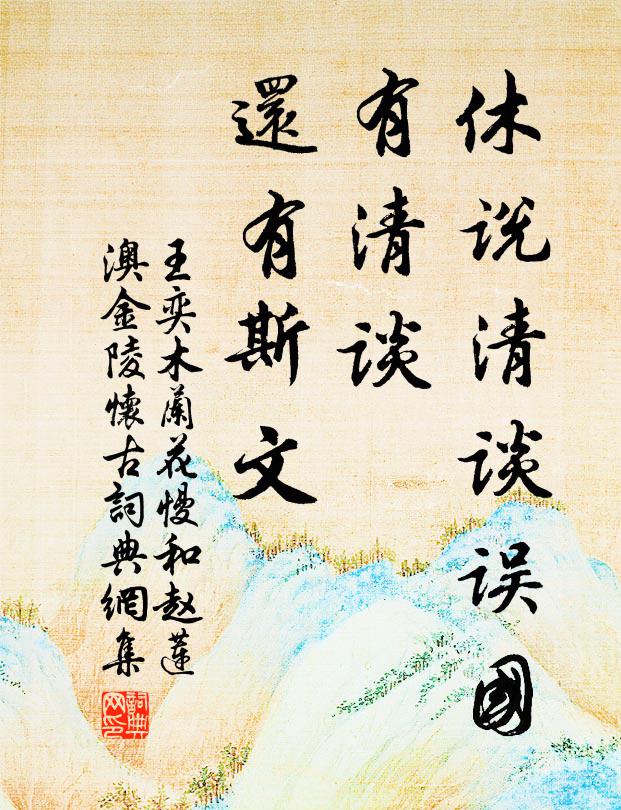 休说清谈误国
有清谈
還有斯文
王奕木蘭花慢和赵莲
澳金陵懷古詞典網集
詞典
网印